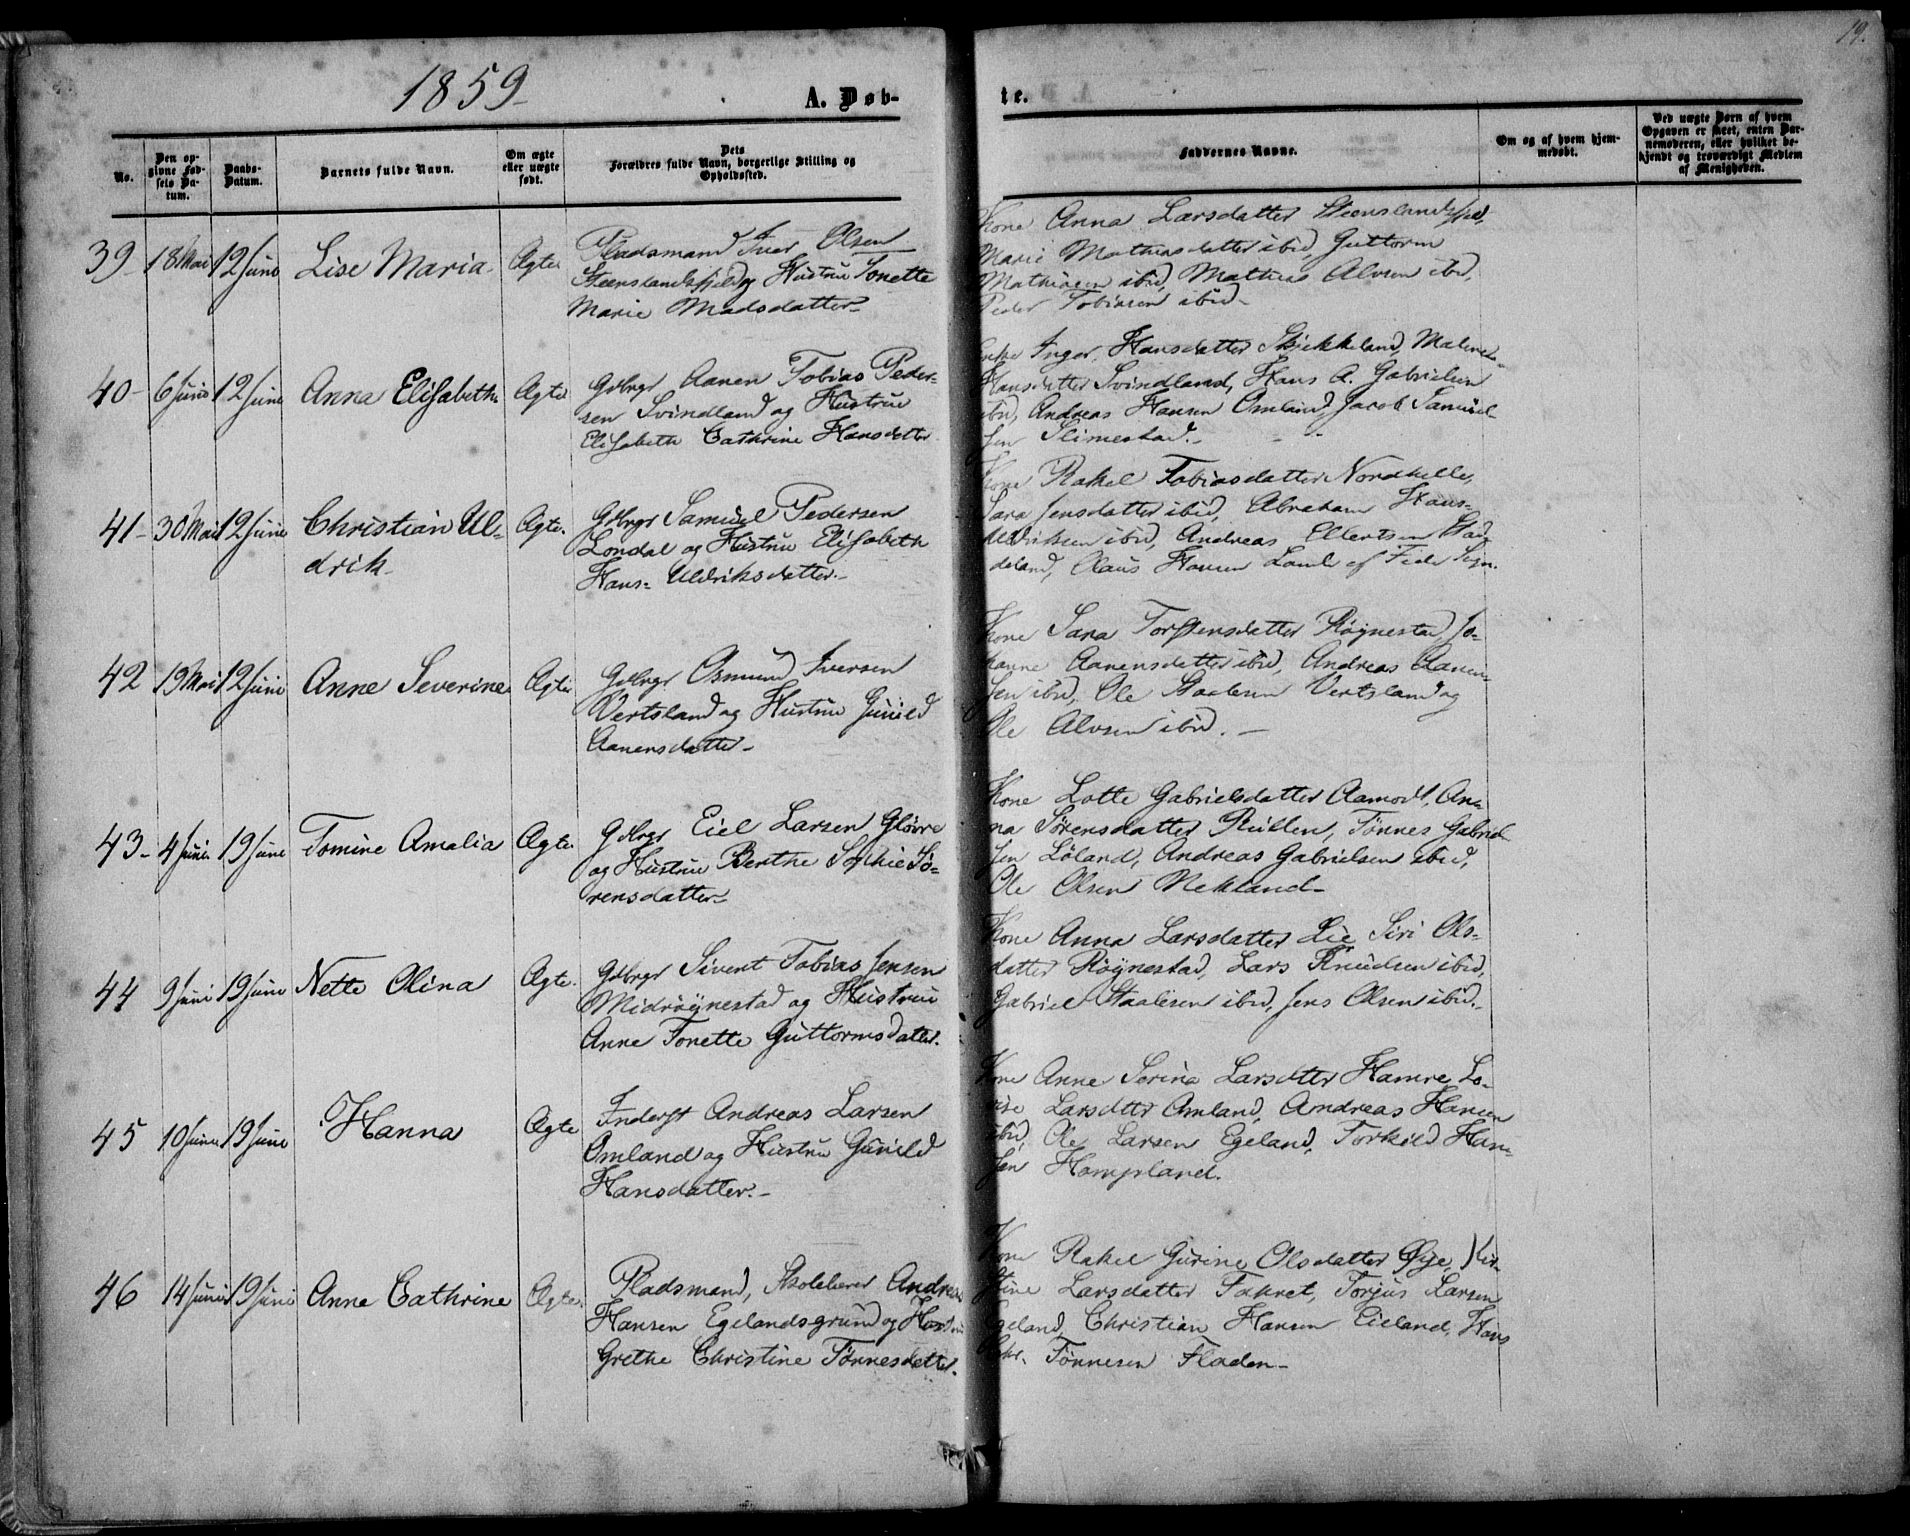 19.
1859
A. Døb-
te.
No.
Den op-
givne Fød-
sels Da-
tum.
Daabs-
Datum.
Barnets fulde Navn.
Om ægte
eller uægte
født.
Dets
Forældres fulde Navn, borgerlige Stilling og
Opholdssted.
Faddernes Navne.
Om og af hvem hjem-
medøbt.
Ved uægte Børn af hvem
Opgaven er skeet, enten Bar-
nemoderen, eller hvilket be-
kjendt og troværdigt Medlem
af Menigheden.
39 18 Mai 12 Juni Lise Maria Ægte
Pladsmand Iver Olsen
Steenslandsfjeld og Hustru Tonette
Marie Madsdatter
Kone Anna Larsdatter
Marie Mathiasdatter ibid, Guttorm
Mathiasen ibid, Mathias Alvsen ibid,
Peder Tobiasen ibid
40 6 Juni 12 Juni Anna Elisabeth Ægte
Gdbrgr Aanen Tobias Peder-
sen Svindland og Hustrue
Elisabeth Cathrine Hansdatter
Enke Inger Hansdatter Skjekkeland,
Hansdatter Svindland, Hans A. Gabrielsen
ibid, Andreas Hansen Omland, Jacob Samuel-
sen Slimestad.
41 30 Mai 12 Juni Christian Ul-
drik Ægte.
Gdbrgr Samuel Pedersen
Londal og Hustru Elisabeth
Hans-Uldriksdatter.
Kone Rakel Tobiasdatter Nordhelle,
Sara Jensdatter ibid, Abraham Hans-
Uldriksen ibid, Andreas Ellertsen
deland, Olaus Hansen af Fede Sogn.
42 19 Mai 12 Juni Anne Severine Ægte
Gdbrgr Osmund Iversen
Vertsland og Hustru Gunild
Aanensdatter
Kone Sara Torstensdatter Røynestad, Jo-
hanne Aanensdatter ibid, Andreas Aanen-
sen ibid, Ole Staalesen Vertsland og
Ole Alvsen ibid.
43 4 Juni 19 Juni Tomine Amalia Ægte.
Gdbrgr Eiel Larsen Gløvre
og Hustru Berthe Sophie Sø-
rensdatter
Kone Lotte Gabrielsdatter Aamodt, An-
na Sørensdatter Rullen, Tønnes Gabriel-
sen Løland, Andreas Gabrielsen ibid,
Ole Olsen Nekland
44 9 Juni 19 Juni Nette Olina Ægte.
Gdbrgr Sivert Tobias Jensen
Midrøynestad og Hustrue
Anne Tonette Guttormsdatter.
Kone Anna Larsdatter Lie, Siri Ols-
datter Røynestad, Lars Knudsen ibid,
Gabriel Staalesen ibid, Jens Olsen ibid.
45 10 Juni 19 Juni Hanna Ægte
Inderst Andreas Larsen
Omland og Hustru Gunild
Hansdatter.
Kone Anne Serina Larsdtter Hamre, Lo-
vise Larsdtter Omland, Andreas Hansen
ibid, Ole Larsen Egeland, Torkild Han-
sen Hompland.
46 14 Juni 19 Juni Anne Cathrine Ægte.
Pladsmand, Skolelærer Andreas
Hansen Egelandsgrund og Hustru
Grethe Christine Tønnesdatter.
Kone Rakel Gurine Olsdatter Øye, Kir-
stine Larsdatter Fakret, Torjus Larsen
Egeland, Christian Hansen Eieland, Hans
Chr. Tønnesen Fladen